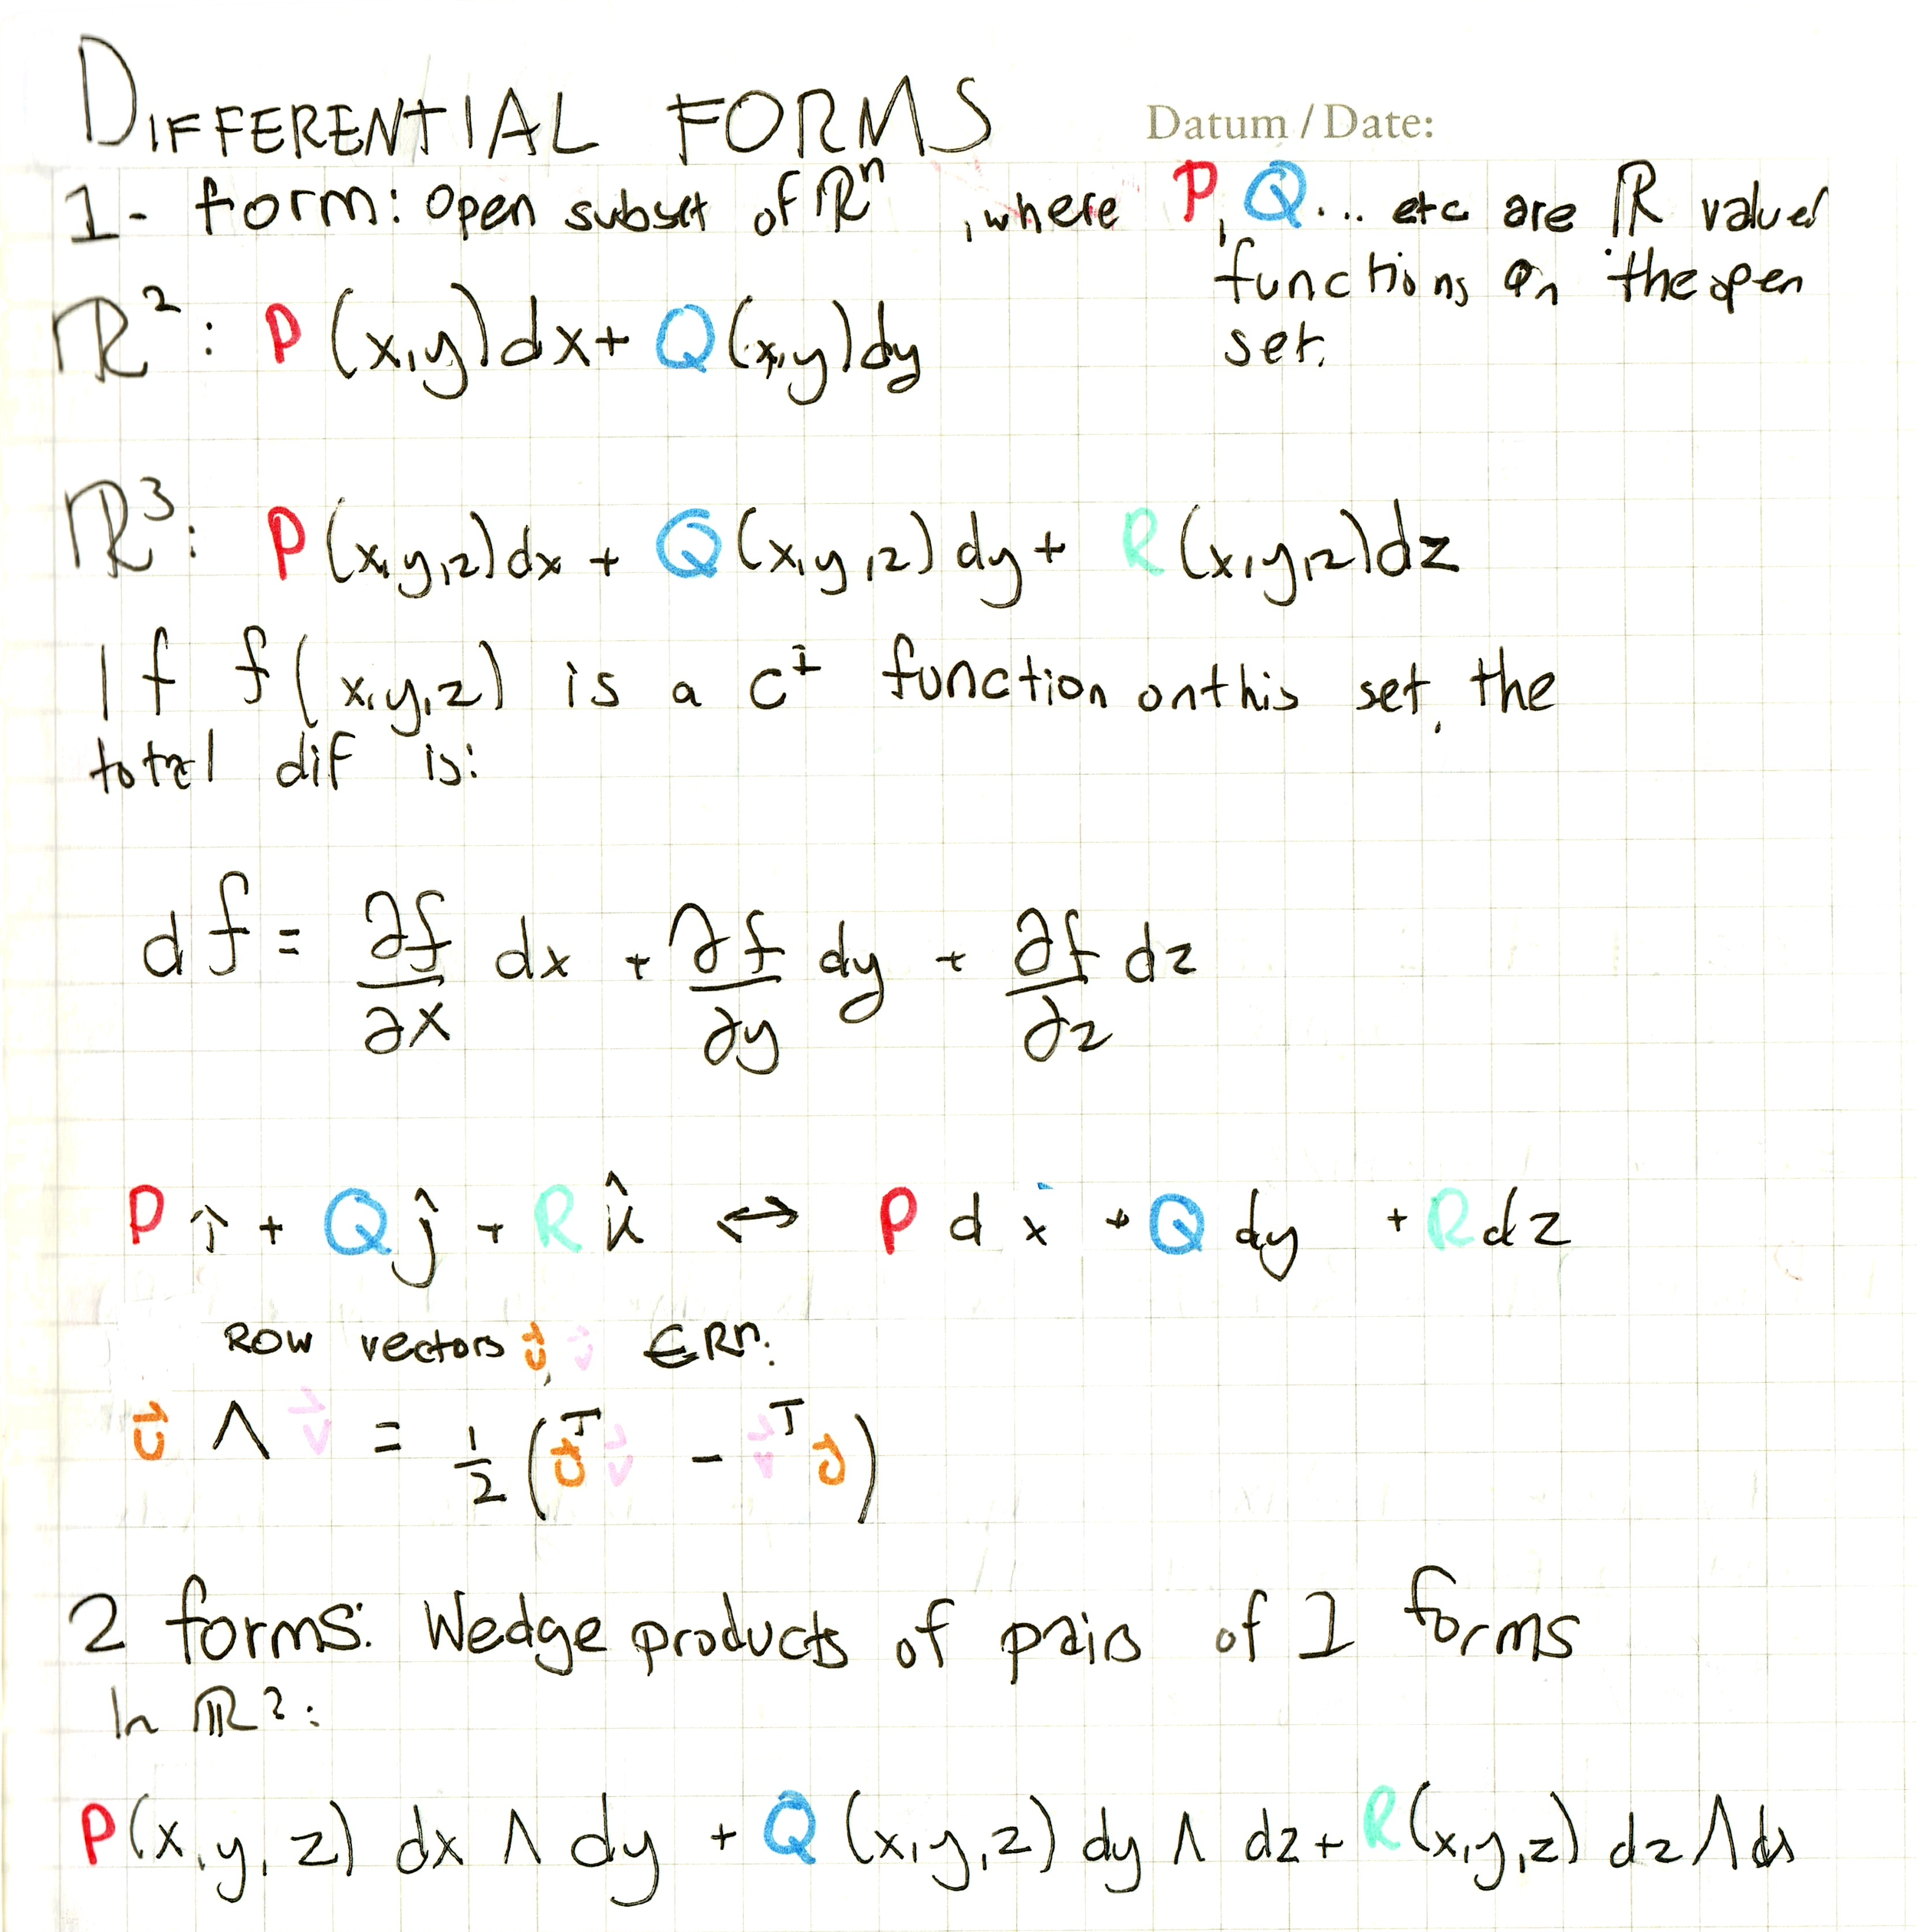 DIFFERENTIAL FORMS
Datum / Date:
1- form: Open subset of ℝⁿ , where P, Q... etc are ℝ valued
functions on the open
set.
ℝ²: P (x,y) dx + Q (x,y) dy
ℝ³: P (x,y,z) dx + Q (x,y,z) dy + R (x,y,z) dz
If f(x,y,z) is a C¹ function on this set, the
total dif is:
df = ∂f/∂x dx + ∂f/∂y dy + ∂f/∂z dz
P î + Q ĵ + R k̂ ↔ P dx + Q dy + R dz
Row vectors u⃗, v⃗ ∈ Rⁿ:
u⃗ ∧ v⃗ = 1/2 (u⃗ᵀ v⃗ - v⃗ᵀ u⃗)
2 forms: Wedge products of pairs of 1 forms
In ℝ²:
P(x,y,z) dx ∧ dy + Q (x,y,z) dy ∧ dz + R(x,y,z) dz ∧ dx